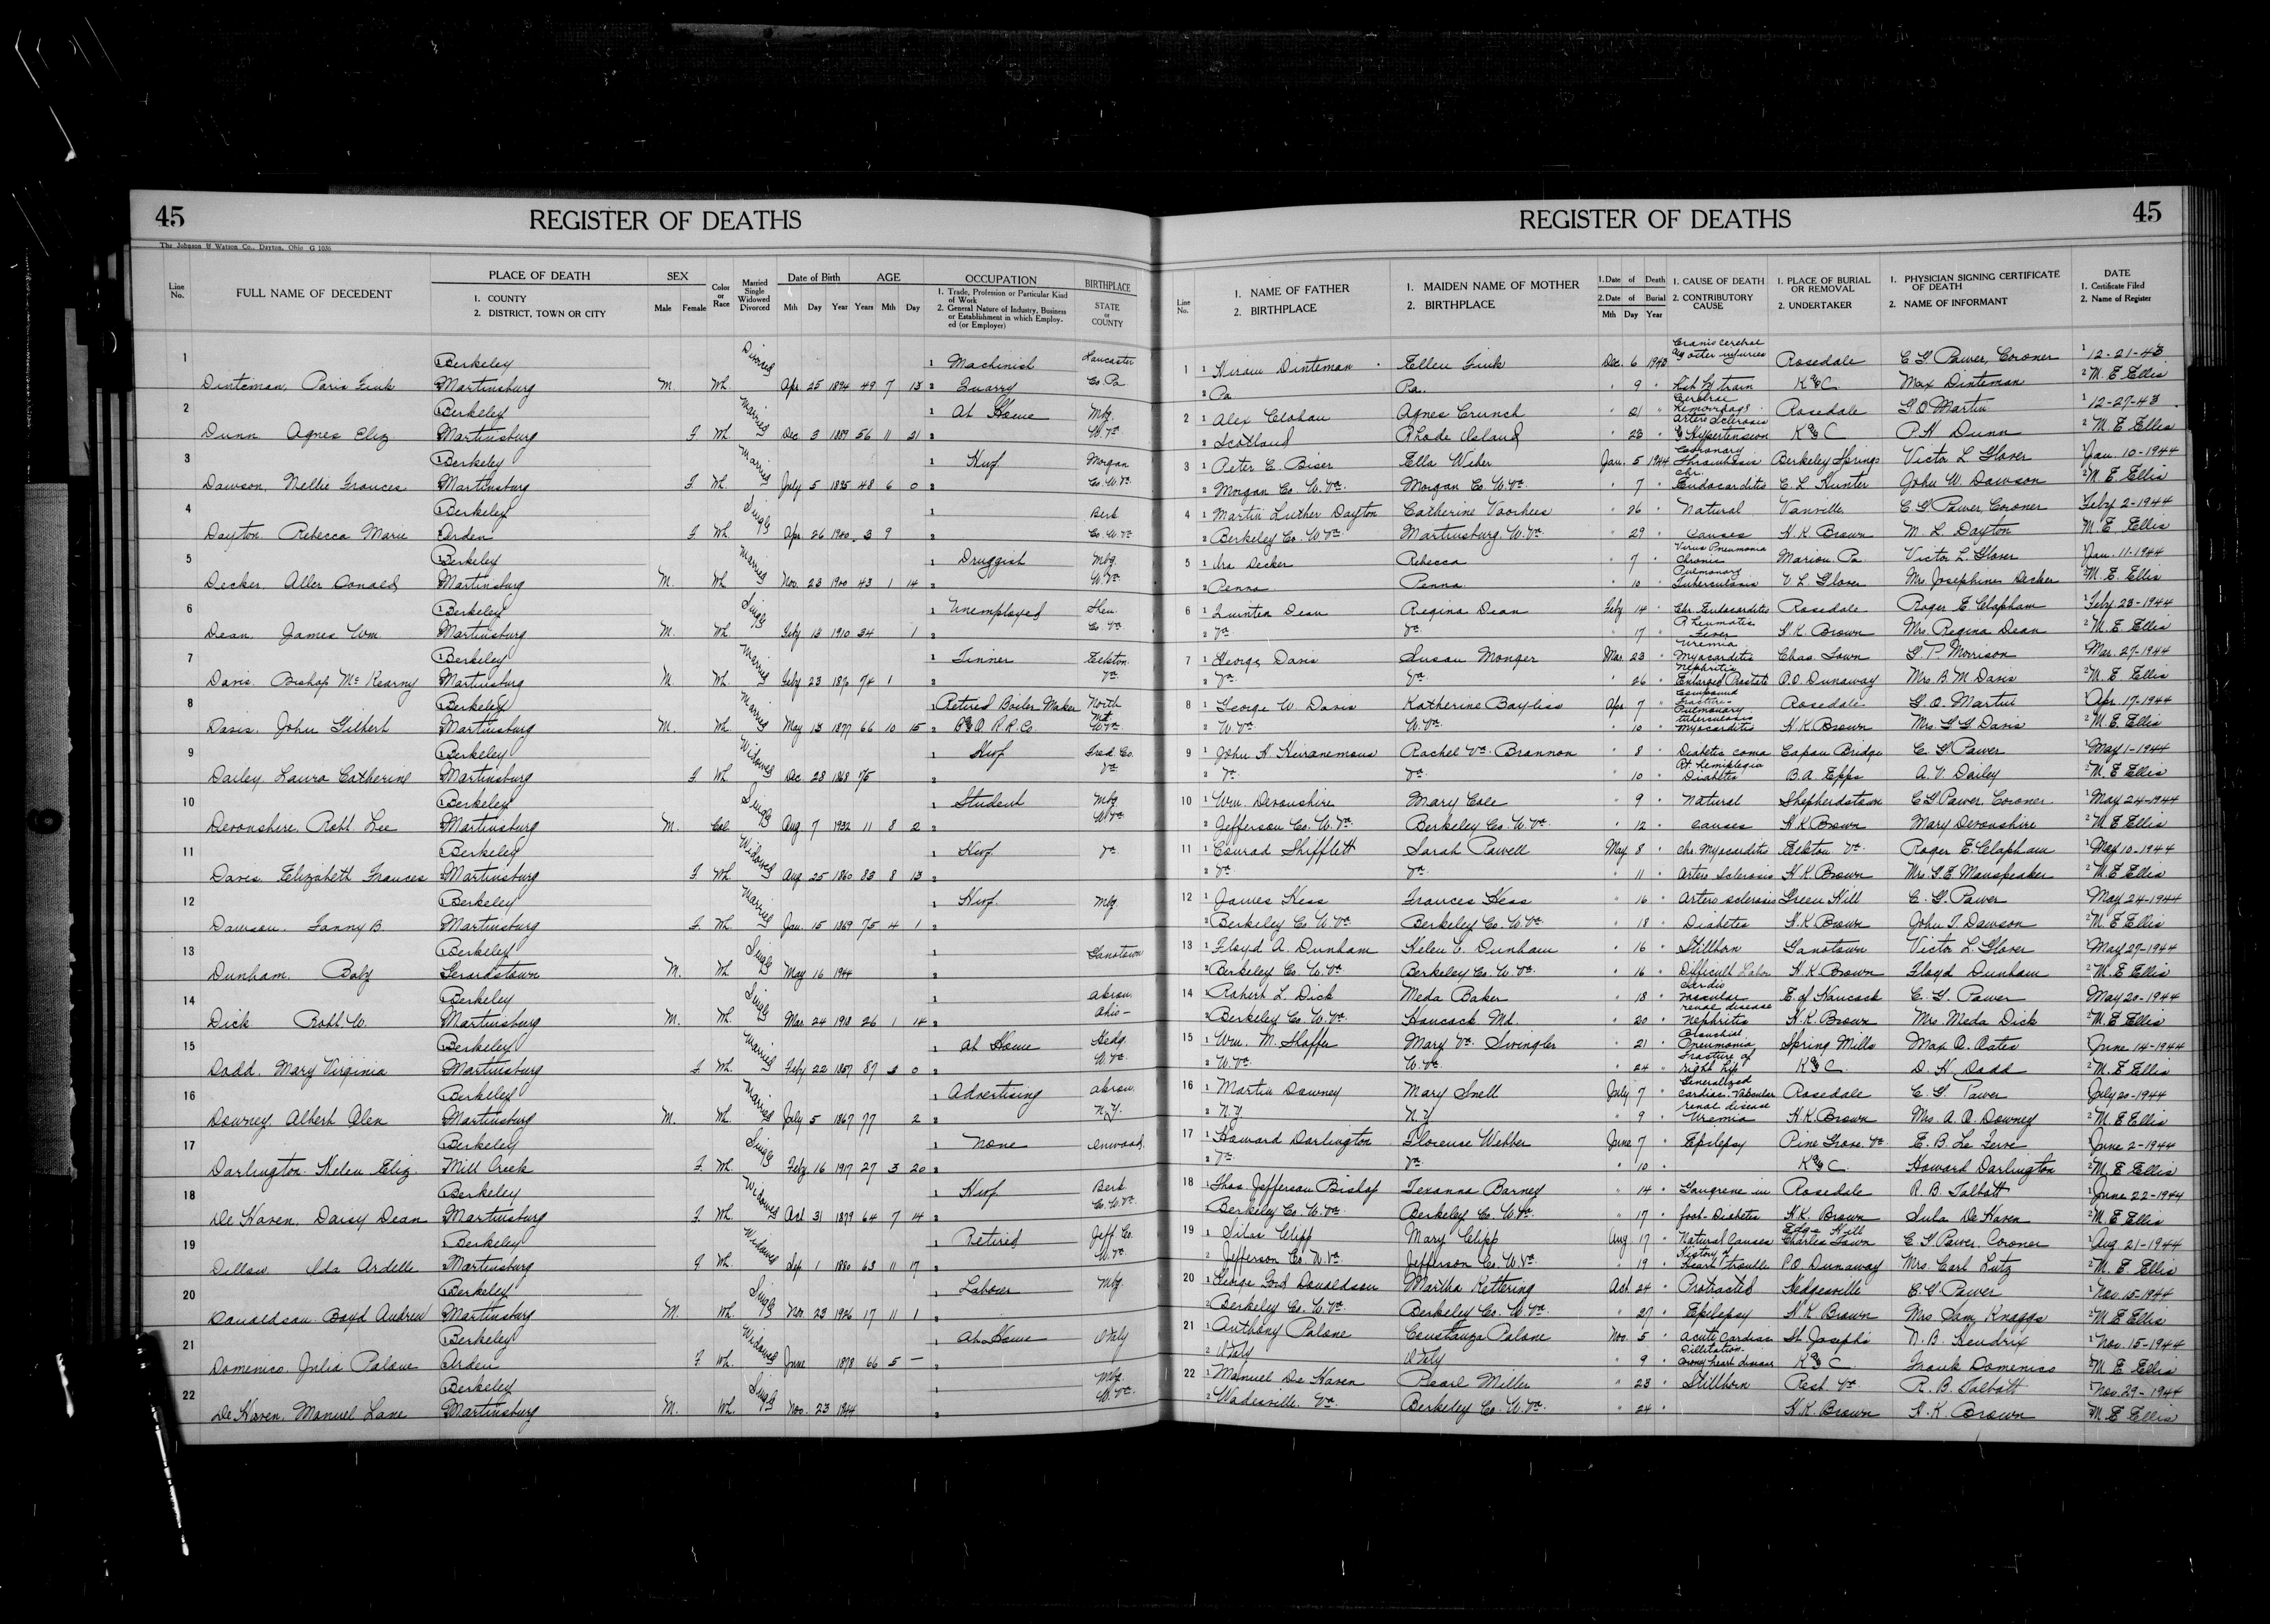 45
REGISTER OF DEATHS
The Johnson & Watson Co., Dayton, Ohio G 1036
Line No.
FULL NAME OF DECEDENT
PLACE OF DEATH
1. COUNTY
2. DISTRICT, TOWN OR CITY
SEX
Male Female
Color or Race
Married Single Widowed Divorced
Date of Birth
Mth Day Year
AGE
Years Mth Day
OCCUPATION
1. Trade, Profession or Particular Kind of Work
2. General Nature of Industry, Business or Establishment in which Employed (or Employer)
BIRTHPLACE
STATE or COUNTY
1 Berkeley Divorced 1 Machinist Lancaster
Dinteman, Paris Fink Martinsburg M. Wh. Apr 25 1894 49 7 13 2 Quarry Co. Pa
2 Berkeley Married 1 At Home Mbg.
Dunn Agnes Eliz Martinsburg F Wh Dec 3 1889 56 11 21 2 W. Va
3 Berkeley Married 1 Hwf Morgan
Dawson, Nellie Frances Martinsburg F Wh. July 5 1895 48 6 0 2 Co. W. Va
4 Berkeley Single 1 Berk
Dayton, Rebecca Marie Arden F Wh. Apr 26 1940 3 9 2 Co. W. Va
5 Berkeley Married 1 Druggist Mbg.
Decker, Aller Donald Martinsburg M. Wh Nov. 23 1900 43 1 14 2 W. Va
6 Berkeley Single 1 Unemployed Shen.
Dean, James Wm. Martinsburg M. Wh. Feby 13 1910 34 1 2 Co. Va
7 Berkeley Married 1 Tinner Elkton
Davis, Bishop McKearny Martinsburg M. Wh. Feby 23 1870 74 1 2 Va
8 Berkeley Married 1 Retired Boiler Maker North Mt.
Davis, John Gilbert Martinsburg M. Wh May 13 1877 66 10 15 2 B & O R.R. Co W. Va
9 Berkeley Widowed 1 Hwf Fred. Co.
Dailey Laura Catherine Martinsburg F Wh Dec. 28 1868 75 2 Va
10 Berkeley Single 1 Student Mbg
Devonshire, Robt. Lee Martinsburg M. Col. Aug 7 1932 11 8 2 2 W. Va
11 Berkeley Widowed 1 Hwf. Va
Davis Elizabeth Frances Martinsburg F Wh Aug 25 1860 83 8 13 2
12 Berkeley Married 1 Hwf. Mbg
Dawson, Fanny B. Martinsburg F. Wh. Jan. 15 1869 75 4 1 2
13 Berkeley Single 1 Ganotown
Dunham, Baby Gerardstown M. Wh May 16 1944 2
14 Berkeley Single 1 Akron
Dick Robt. W. Martinsburg M. Wh. Mar. 24 1918 26 1 14 2 Ohio-
15 Berkeley Married 1 At Home Hedg.
Dodd, Mary Virginia Martinsburg F Wh. Feby 22 1857 87 3 0 2 W. Va.
16 Berkeley Married 1 Advertising Akron
Downey, Albert Alen Martinsburg M. Wh. July 5 1867 77 2 2 N.Y.
17 Berkeley Single 1 None Inwood
Darlington, Helen Eliz Mill Creek F. Wh. Feby 16 1917 27 3 20 2
18 Berkeley Widowed 1 Hwf Berk
De Haven, Daisy Dean Martinsburg F. Wh. Oct 31 1879 64 7 14 2 Co. W. Va
19 Berkeley Widowed 1 Retired Jeff Co.
Dillow Ida Ardelle Martinsburg F Wh Sep 1 1880 63 11 17 2 W. Va
20 Berkeley Single 1 Laborer Mbg.
Donaldson, Boyd Andrew Martinsburg M. Wh. Nov. 23 1926 17 11 1 2
21 Berkeley Widowed 1 At Home Italy
Domenico, Julia Palone Arden F. Wh. June 1878 66 5 — 2
22 Berkeley Single 1 Mbg.
De Haven, Manuel Lane Martinsburg M. Wh. Nov. 23 1944 2 W. Va.
REGISTER OF DEATHS
45
Line No.
1. NAME OF FATHER
2. BIRTHPLACE
1. MAIDEN NAME OF MOTHER
2. BIRTHPLACE
1. Date of Death
2. Date of Burial
Mth Day Year
1. CAUSE OF DEATH
2. CONTRIBUTORY CAUSE
1. PLACE OF BURIAL OR REMOVAL
2. UNDERTAKER
1. PHYSICIAN SIGNING CERTIFICATE OF DEATH
2. NAME OF INFORMANT
DATE
1. Certificate Filed
2. Name of Register
1 1 Hiram Dinteman Ellen Fink Dec. 6 1943 Cranio cerebral injuries Rosedale C G Power, Coroner 1 12-21-43
2 Pa Pa. " 9 " train K & C Max Dinteman 2 M. E Ellis
2 1 Alex Clohan Agnes Crunch " 21 " Cerebral Hemorrhage Rosedale G O Martin 1 12-27-43
2 Scotland Rhode Island " 23 " Arterio Sclerosis & Hypertension K & C P. H Dunn 2 M. E Ellis
3 1 Peter E. Biser Ella Weber Jan. 5 1944 Coronary Thrombosis Berkeley Springs Victor L Glover Jan. 10-1944
2 Morgan Co W. Va. Morgan Co. W. Va. " 7 " Chr. Endocarditis C. L. Hunter John W. Dawson 2 M. E Ellis
4 1 Martin Luther Dayton Catherine Voorhees " 26 " Natural Vanville C G Power, Coroner Feby 2-1944
2 Berkeley Co. W. Va. Martinsburg, W. Va. " 29 " Causes H. K. Brown M. L. Dayton M. E Ellis
5 1 Ira Decker Rebecca " 7 " Virus Pneumonia Chronic Marion Pa. Victor L. Glover Jan. 11-1944
2 Penna. Penna. " 10 " Pulmonary Tuberculosis V. L. Glover Mrs Josephines Decker M. E. Ellis
6 1 Quinten Dean Regina Dean Feby 14 " Chr. Endocarditis Rosedale Roger E Clapham 1 Feby 23-1944
2 Va. Va. " 17 " Rheumatic Fever H. K. Brown Mrs. Regina Dean 2 M. E. Ellis
7 1 George Davis Susan Monger Mar. 23 " Uremia Myocarditis Chas. Town G. P. Morrison Mar. 27-1944
2 Va. Va. " 26 " Nephritis Enlarged Prostate P. O. Dunaway Mrs. B. M. Davis 2 M. E Ellis
8 1 George W. Davis Katherine Bayliss Apr 7 " Compound Fracture- Pulmonary Rosedale G. O. Martin 1 Apr. 17-1944
2 W. Va. W. Va. " 10 " tuberculosis myocarditis H. K. Brown Mrs. G G Davis 2 M. E. Ellis
9 1 John H Rachel Va. Brannon " 8 " Diabetic coma Capon Bridge C. G. Power May 1-1944
2 Va. Va. " 10 " Rt. hemiplegia Diabetes B. A. Epps A. V. Dailey 2 M. E Ellis
10 1 Wm. Devonshire Mary Cole " 9 " Natural Shepherdstown C G Power, Coroner 1 May 24-1944
2 Jefferson Co. W. Va. Berkeley Co. W. Va. " 12 " causes H K Brown Mary Devonshire 2 M. E Ellis
11 1 Conrad Shifflett Sarah Powell May 8 " Chr. Myocarditis Elkton Va. Roger E. Clapham 1 May 10-1944
2 Va. Va. " 11 " Arterio Sclerosis H K. Brown Mrs. G. E. Manspeaker 2 M. E. Ellis
12 1 James Hess Frances Hess " 16 " Arterio sclerosis Green Hill C. G. Power May 24-1944
2 Berkeley Co. W. Va. Berkeley Co. W. Va. " 18 " Diabetes H. K Brown John T. Dawson 2 M. E Ellis
13 1 Floyd A. Dunham Helen V. Dunham " 16 " Stillborn Ganotown Victor L. Glover 1 May 27-1944
2 Berkeley Co. W. Va. Berkeley Co. W. Va. " 16 " Difficult Labor H. K. Brown Floyd Dunham 2 M. E Ellis
14 1 Robert L. Dick Meda Baker " 18 " Cardio vascular E. of Hancock C. G. Power May 20-1944
2 Berkeley Co. W. Va. Hancock Md. " 20 " renal disease Nephritis H. K. Brown Mrs. Meda Dick 2 M. E Ellis
15 1 Wm. M. Shaffer Mary Va. Swingler " 21 " Bronchial Pneumonia Spring Mills Max O. Oates June 14-1944
2 W. Va. W. Va. " 24 " Fracture of right hip K & C. D. H Dodd 2 M. E. Ellis
16 1 Martin Downey Mary Snell July 7 " Generalized Cardiac-Vascular Rosedale C G. Power July 20-1944
2 N.Y N.Y " 9 " renal disease Uremia H. K. Brown Mrs A. A. Downey 2 M. E Ellis
17 1 Howard Darlington Florense Webber June 7 " Epilepsy Pine Grove Va. E. B. Le Fevre June 2-1944
2 Va. Va. " 10 " K & C. Howard Darlington 2 M. E Ellis
18 1 Thos. Jefferson Bishop Texanna Barney " 14 " Gangrene in Rosedale R. B. Talbott June 22-1944
Berkeley Co. W. Va. Berkeley Co. W. Va. " 17 " foot- Diabetes H. K. Brown Sula De Haven 2 M. E Ellis
19 1 Silas Clipp Mary Clipp Aug 17 " Natural Causes Edge Hill Charles Town C. G Power, Coroner Aug 21-1944
2 Jefferson Co W. Va. Jefferson Co. W. Va. " 19 " History of Heart trouble P. O Dunaway Mrs. Carl Lutz 2 M. E. Ellis
20 1 George Donaldson Martha Kettering Oct 24 " Protracted Hedgesville C. G. Power 1 Nov. 15-1944
2 Berkeley Co. W. Va. Berkeley Co. W. Va. " 27 " Epilepsy H. K Brown Mrs Sam Knaggs 2 M E Ellis
21 1 Anthony Palone Constanza Palone Nov. 5 " Acute Cardiac St. Joseph's N. B. Hendrix 1 Nov. 15-1944
2 Italy Italy " 9 " Dilitation- heart disease K & C Frank Domenico 2 M. E Ellis
22 1 Manuel De Haven Pearl Miller " 23 " Stillborn Rest Va R. B. Talbott 1 Nov. 29-1944
2 Wadesville, Va. Berkeley Co. W. Va. " 24 " H. K. Brown H. K. Brown 2 M. E Ellis